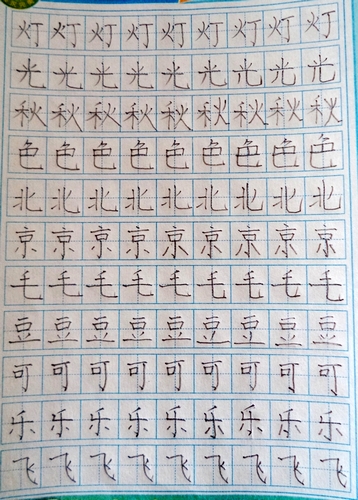 灯灯灯灯灯灯灯灯灯
光光光光光光光光光
秋秋秋秋秋秋秋秋秋
色色色色色色色色色
北北北北北北北北北
京京京京京京京京京
毛毛毛毛毛毛毛毛毛
豆豆豆豆豆豆豆豆豆
可可可可可可可可可
乐乐乐乐乐乐乐乐乐
飞飞飞飞飞飞飞飞飞